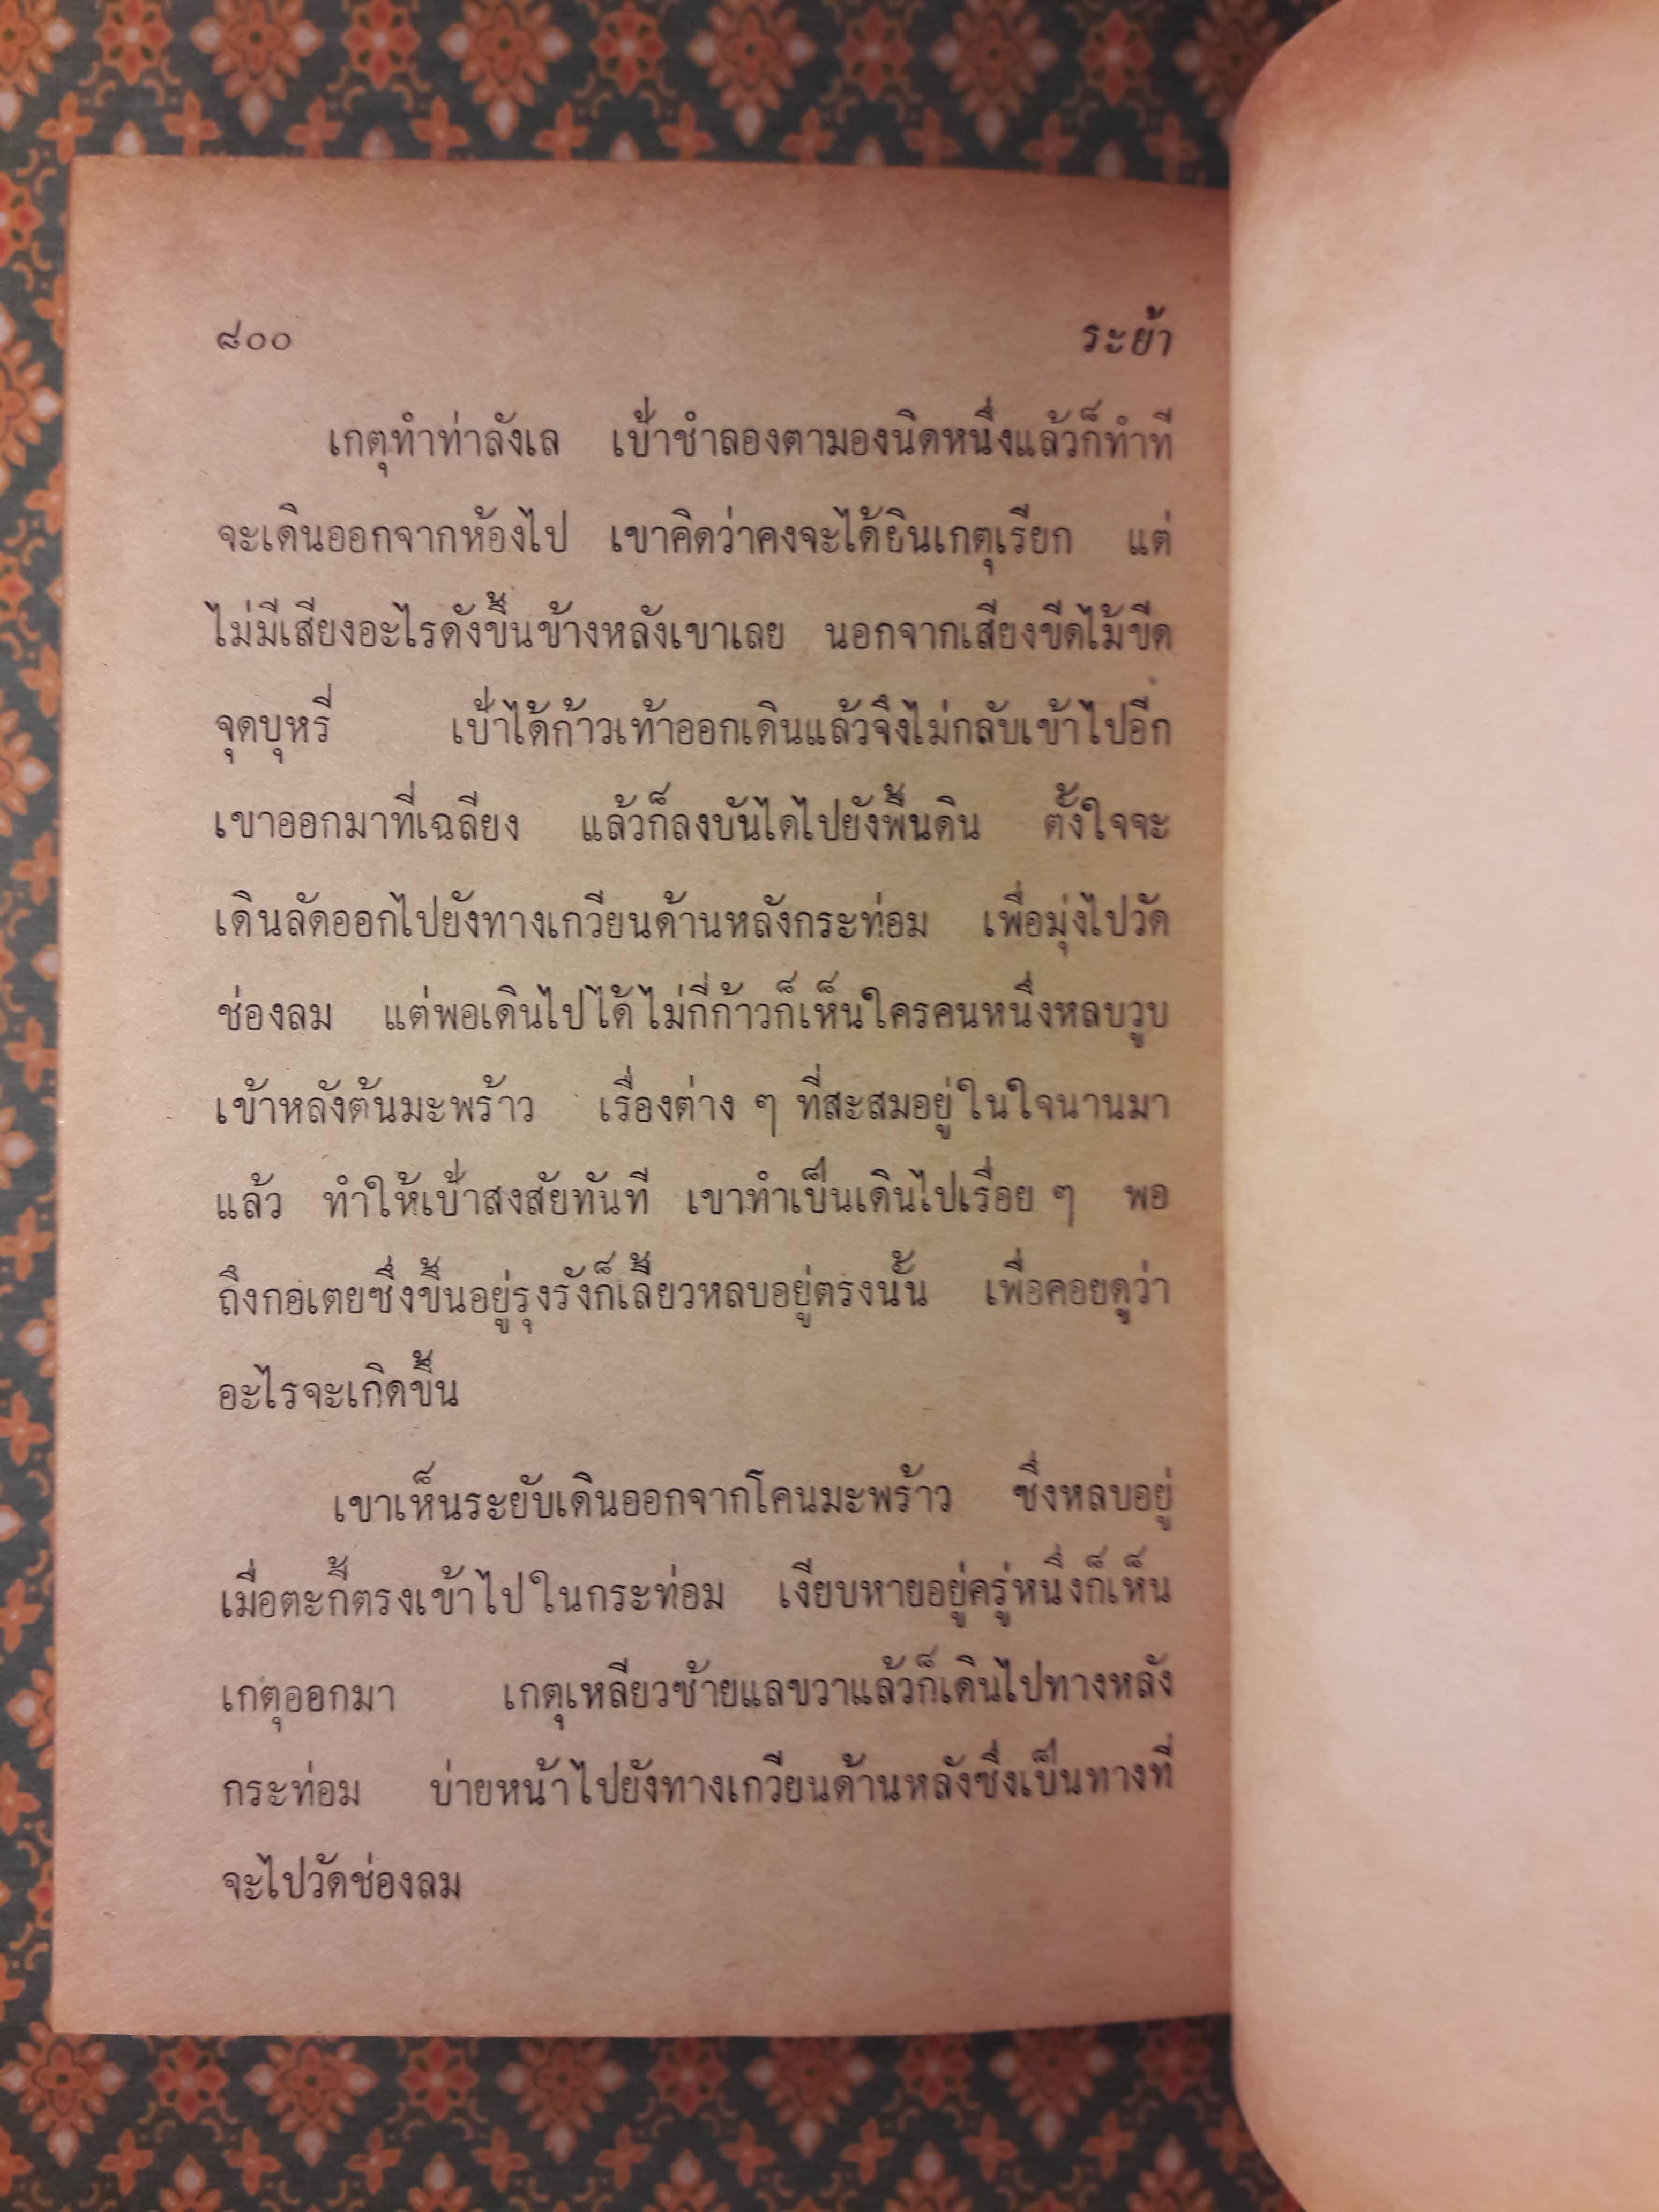 ๘๐๐ ระย้า
เกตุทำท่าลังเล เป้าชำลองตามองนิดหนึ่งแล้วก็ทำที
จะเดินออกจากห้องไป เขาคิดว่าคงจะได้ยินเกตุเรียก แต่
ไม่มีเสียงอะไรดังขึ้นข้างหลังเขาเลย นอกจากเสียงขีดไม้ขีด
จุดบุหรี่ เป้าได้ก้าวเท้าออกเดินแล้วจึงไม่กลับเข้าไปอีก
เขาออกมาที่เฉลียง แล้วก็ลงบันไดไปยังพื้นดิน ตั้งใจจะ
เดินลัดออกไปยังทางเกวียนด้านหลังกระท่อม เพื่อมุ่งไปวัด
ช่องลม แต่พอเดินไปได้ไม่กี่ก้าวก็เห็นใครคนหนึ่งหลบวูบ
เข้าหลังต้นมะพร้าว เรื่องต่าง ๆ ที่สะสมอยู่ในใจนานมา
แล้ว ทำให้เป้าสงสัยทันที เขาทำเป็นเดินไปเรื่อย ๆ พอ
ถึงกอเตยซึ่งขึ้นอยู่รุงรังก็เลี้ยวหลบอยู่ตรงนั้น เพื่อคอยดูว่า
อะไรจะเกิดขึ้น
เขาเห็นระยับเดินออกจากโคนมะพร้าว ซึ่งหลบอยู่
เมื่อตะกี้ตรงเข้าไปในกระท่อม เงียบหายอยู่ครู่หนึ่งก็เห็น
เกตุออกมา เกตุเหลียวซ้ายแลขวาแล้วก็เดินไปทางหลัง
กระท่อม บ่ายหน้าไปยังทางเกวียนด้านหลังซึ่งเป็นทางที่
จะไปวัดช่องลม